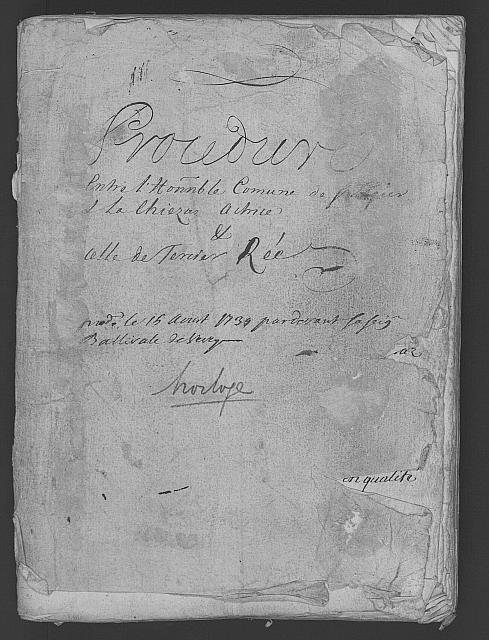 Procedure
Entre l'Honnble Comune de
& La Chiezaz Actrice
&
celle de Tercier Rée
le 15 Aout 1734 pardevant
Ballivale de Vevey
horloge
en qualité